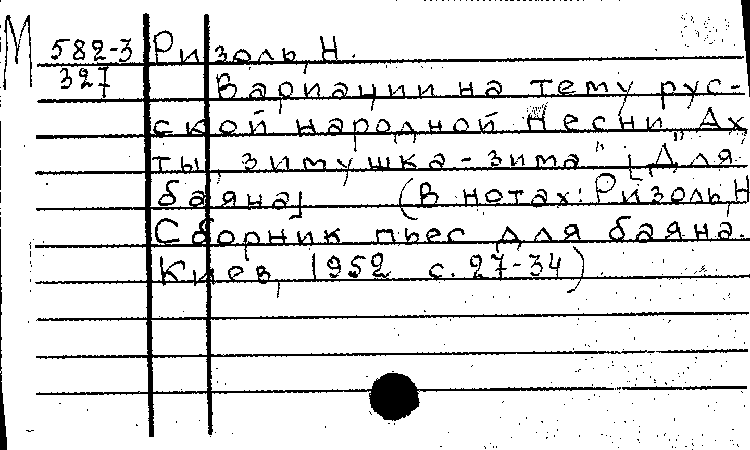 М 582-3 Ризоль, Н.
327 Вариации на тему рус-
ской народной песни „Ах
ты, зимушка-зима" [Для
баяна] (В нотах: Ризоль, Н
Сборник пьес для баяна.
Киев, 1952 с. 27-34)